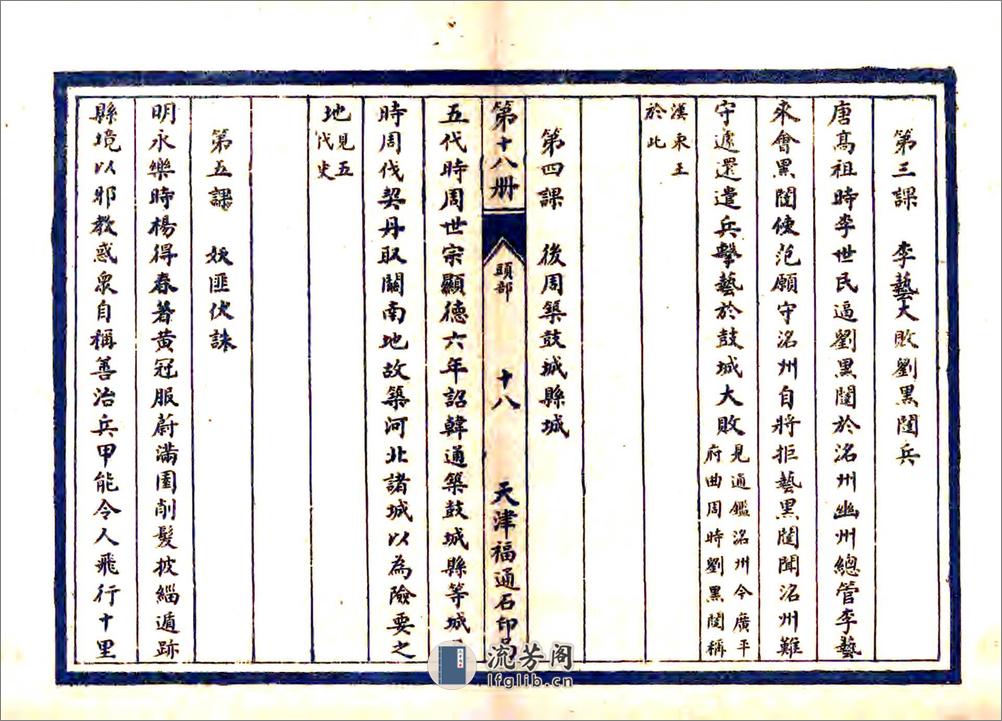 第三課　李藝大敗劉黑闥兵
唐高祖時李世民逼劉黑闥於洺州幽州總管李藝
來會黑闥使范願守洺州自將拒藝黑闥聞洺州難
守遽還遣兵擊藝於鼓城大敗見通鑑洺州今廣平府曲周時劉黑闥稱
漢東王於此
第四課　後周築鼓城縣城
第十八册　頭部　十八　天津福通石印局
五代時周世宗顯德六年詔韓通築鼓城縣等城
時周伐契丹取關南地故築河北諸城以為險要之
地見五代史
第五課　妖匪伏誅
明永樂時楊得春著黃冠服蔚滿園削髮披緇遁跡
縣境以邪教惑眾自稱善治兵甲能令人飛行十里
流芳阁
lfglib.cn